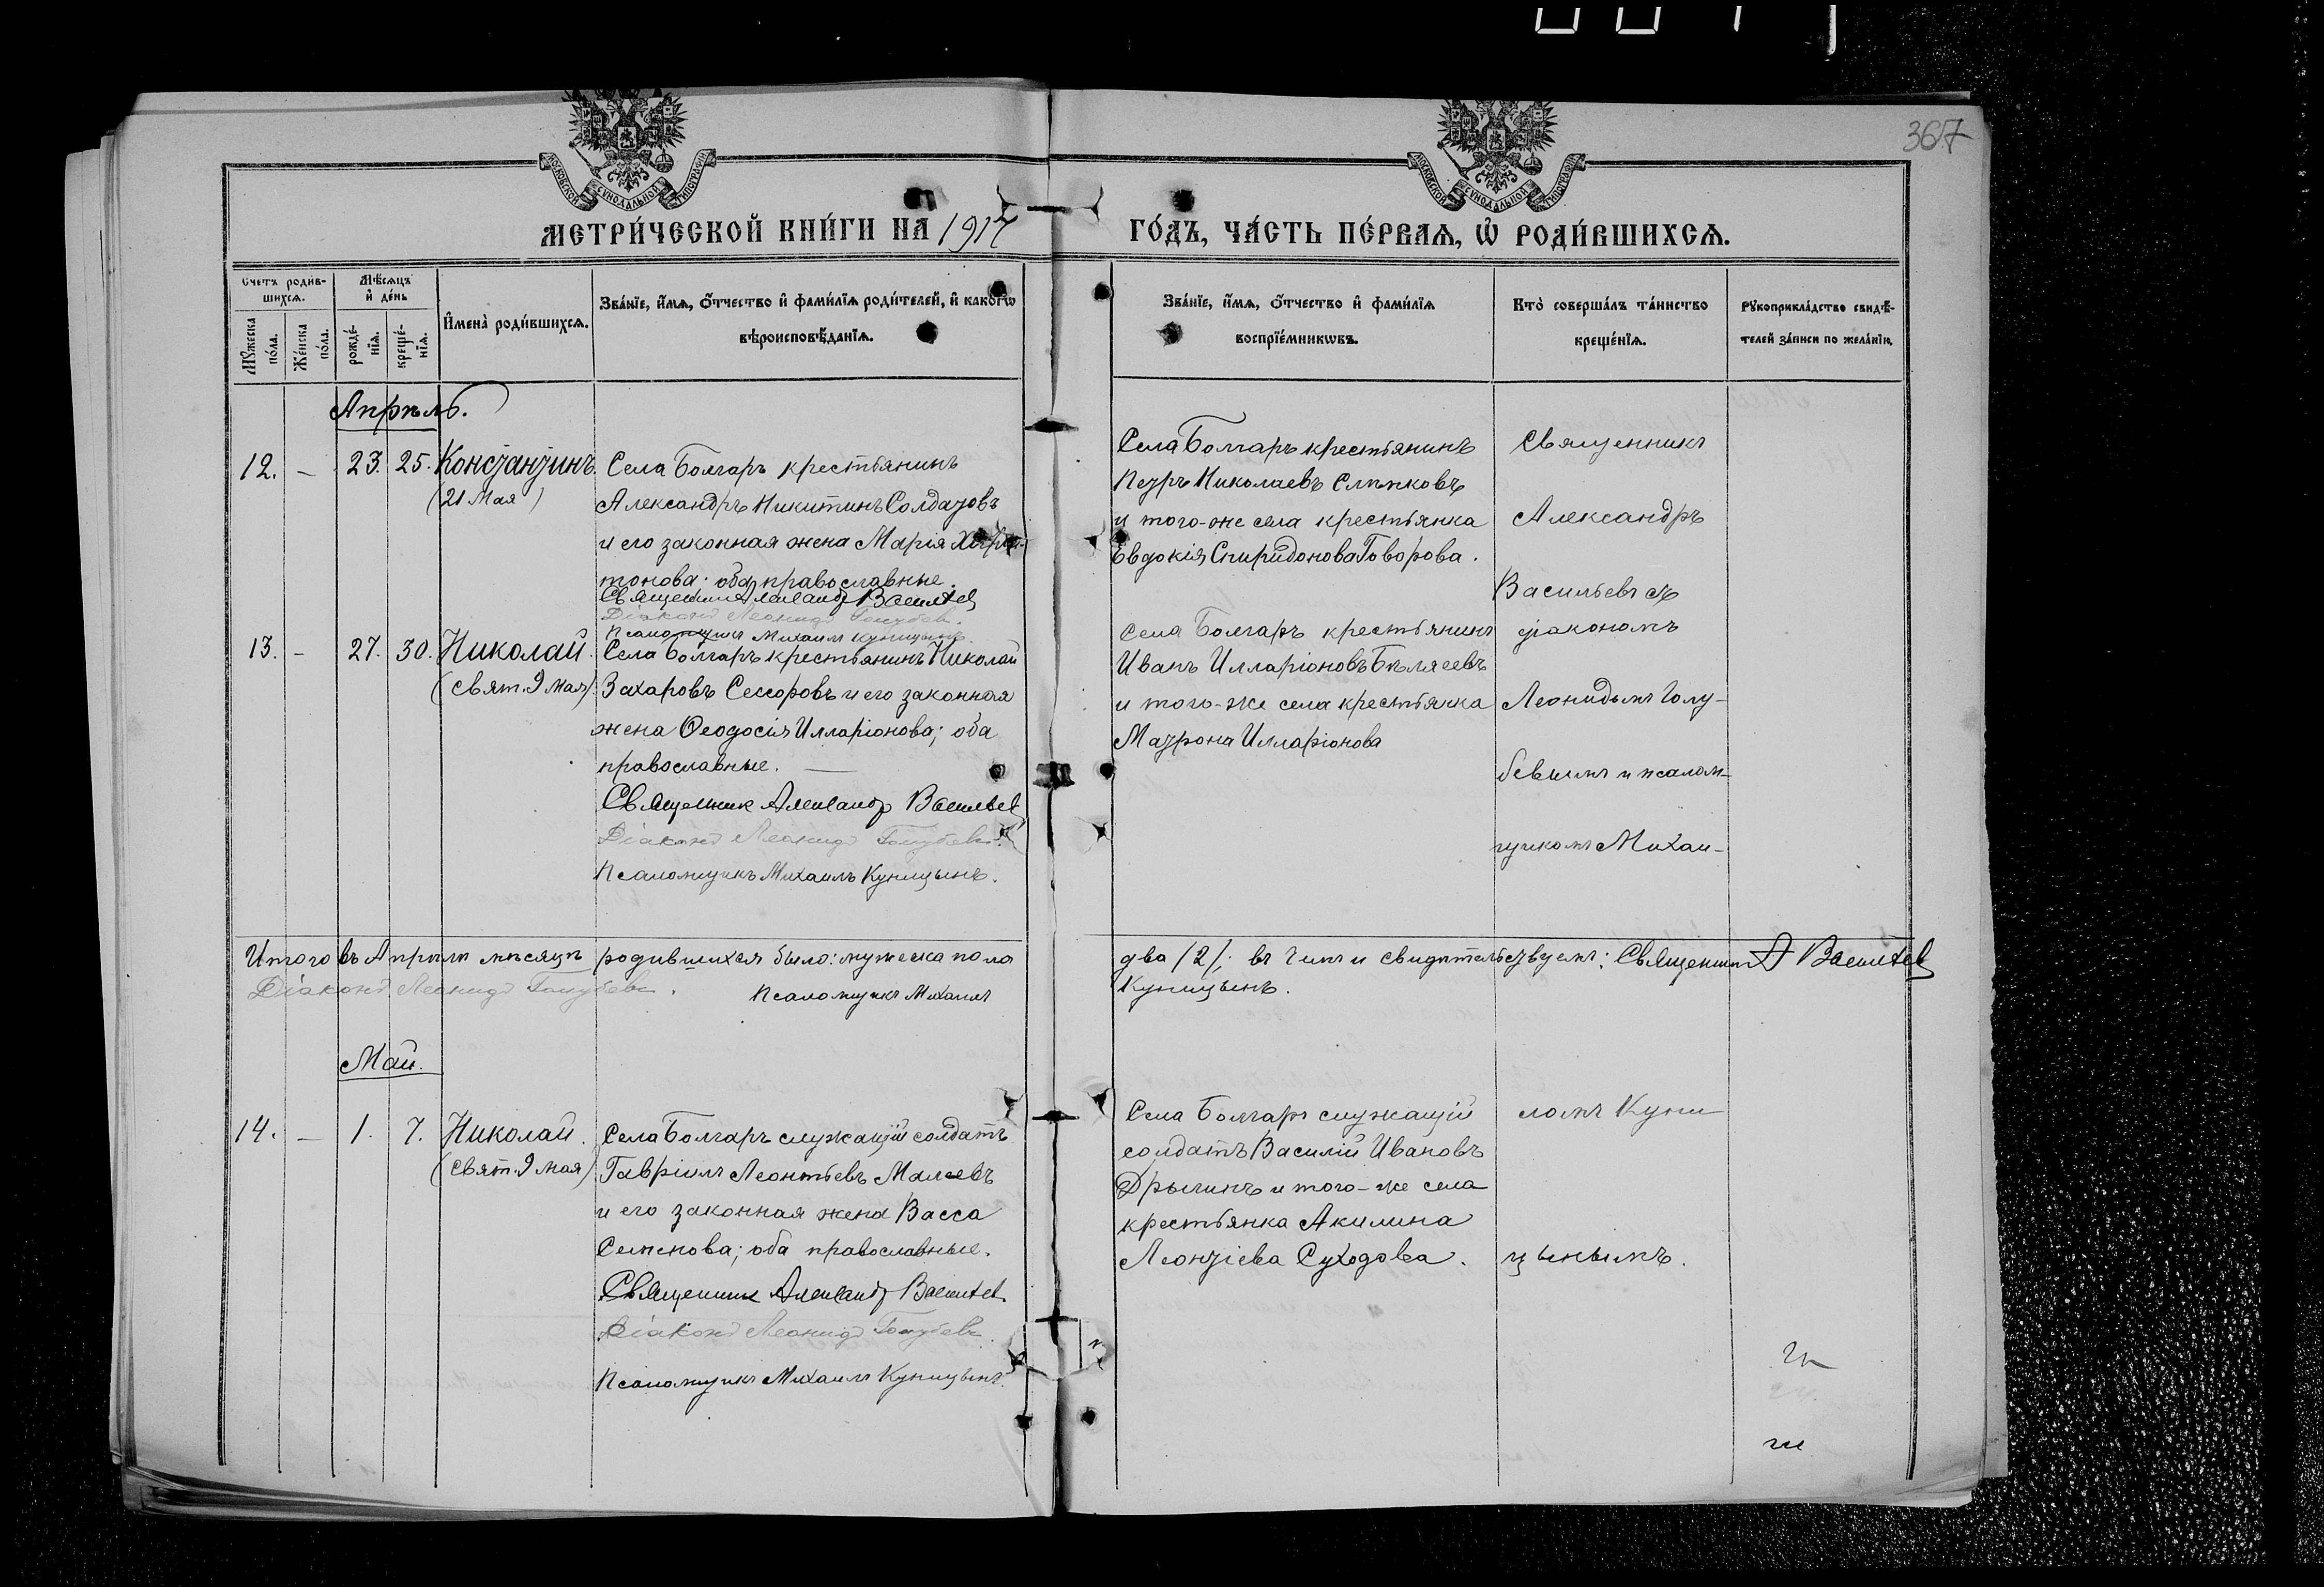 367
МОСКОВСКОЙ СѴНОДАЛЬНОЙ ТИПОГРАФІИ
МОСКОВСКОЙ СѴНОДАЛЬНОЙ ТИПОГРАФІИ
МЕТРИ́ЧЕСКОЙ КНИ́ГИ НА 1917
ГО́ДЪ, ЧА́СТЬ ПЕ́РВАѦ, Ѡ҆ РОДИ́ВШИХСѦ.
Счетъ родив-
шихсѧ.
Мѣсѧцъ
и҆ де́нь
Мꙋжеска
по́ла.
Же́нска
по́ла.
рожде́-
нїѧ.
креще́-
нїѧ.
И҆мена̀ роди́вшихсѧ.
Зва́нїе, и҆́мѧ, ѻ҆́тчество и҆ фами́лїѧ роди́телей, и҆ како́гѡ
вѣроисповѣ́данїѧ.
Зва́нїе, и҆́мѧ, ѻ҆́тчество и҆ фами́лїѧ
воспрїе́мникѡвъ.
Кто̀ соверша́лъ та́инство
креще́нїѧ.
Рꙋкоприкла́дство свидѣ́-
телей за́писи по жела́нїю.
Апрѣль.
12. — 23. 25. Константинъ.
(21 Мая)
Села Болгаръ крестьянинъ
Александръ Никитинъ Солдатовъ
и его законная жена Марія Хари-
тонова; оба православные.
Священникъ Александръ Васильевъ
Діаконъ Леонидъ Голубевъ.
Псаломщикъ Михаилъ Куницынъ.
Села Болгаръ крестьянинъ
Петръ Николаевъ Слѣпковъ
и того-же села крестьянка
Евдокія Спиридонова Говорова.
Священникъ
Александръ
Васильевъ съ
13. — 27. 30. Николай.
(Свят. 9 мая)
Села Болгаръ крестьянинъ Николай
Захаровъ Сессоровъ и его законная
жена Ѳеодосія Илларіонова; оба
православные. —
Священникъ Александръ Васильевъ
Діаконъ Леонидъ Голубевъ.
Псаломщикъ Михаилъ Куницынъ.
Села Болгаръ крестьянинъ
Иванъ Илларіоновъ Бѣляевъ
и того-же села крестьянка
Матрона Илларіонова
діакономъ
Леонидымъ Голу-
бевымъ и псалом-
щикомъ Михаи-
Итого въ Апрѣлѣ мѣсяцѣ родившихся было: мужеска пола
два /2/; въ чемъ и свидѣтельствуемъ: Священникъ А Васильевъ
Діаконъ Леонидъ Голубевъ. Псаломщикъ Михаилъ
Куницынъ.
Май.
14. — 1. 7. Николай.
(Свят. 9 мая)
Села Болгаръ служащій солдатъ
Гавріилъ Леонтьевъ Малеевъ
и его законная жена Васса
Семенова; оба православные.
Священникъ Александръ Васильевъ.
Діаконъ Леонидъ Голубевъ.
Псаломщикъ Михаилъ Куницынъ.
Села Болгаръ служащій
солдатъ Василій Ивановъ
Дрыгинъ и того-же села
крестьянка Акилина
Леонтіева Суходова.
ломъ Куни-
цынымъ.